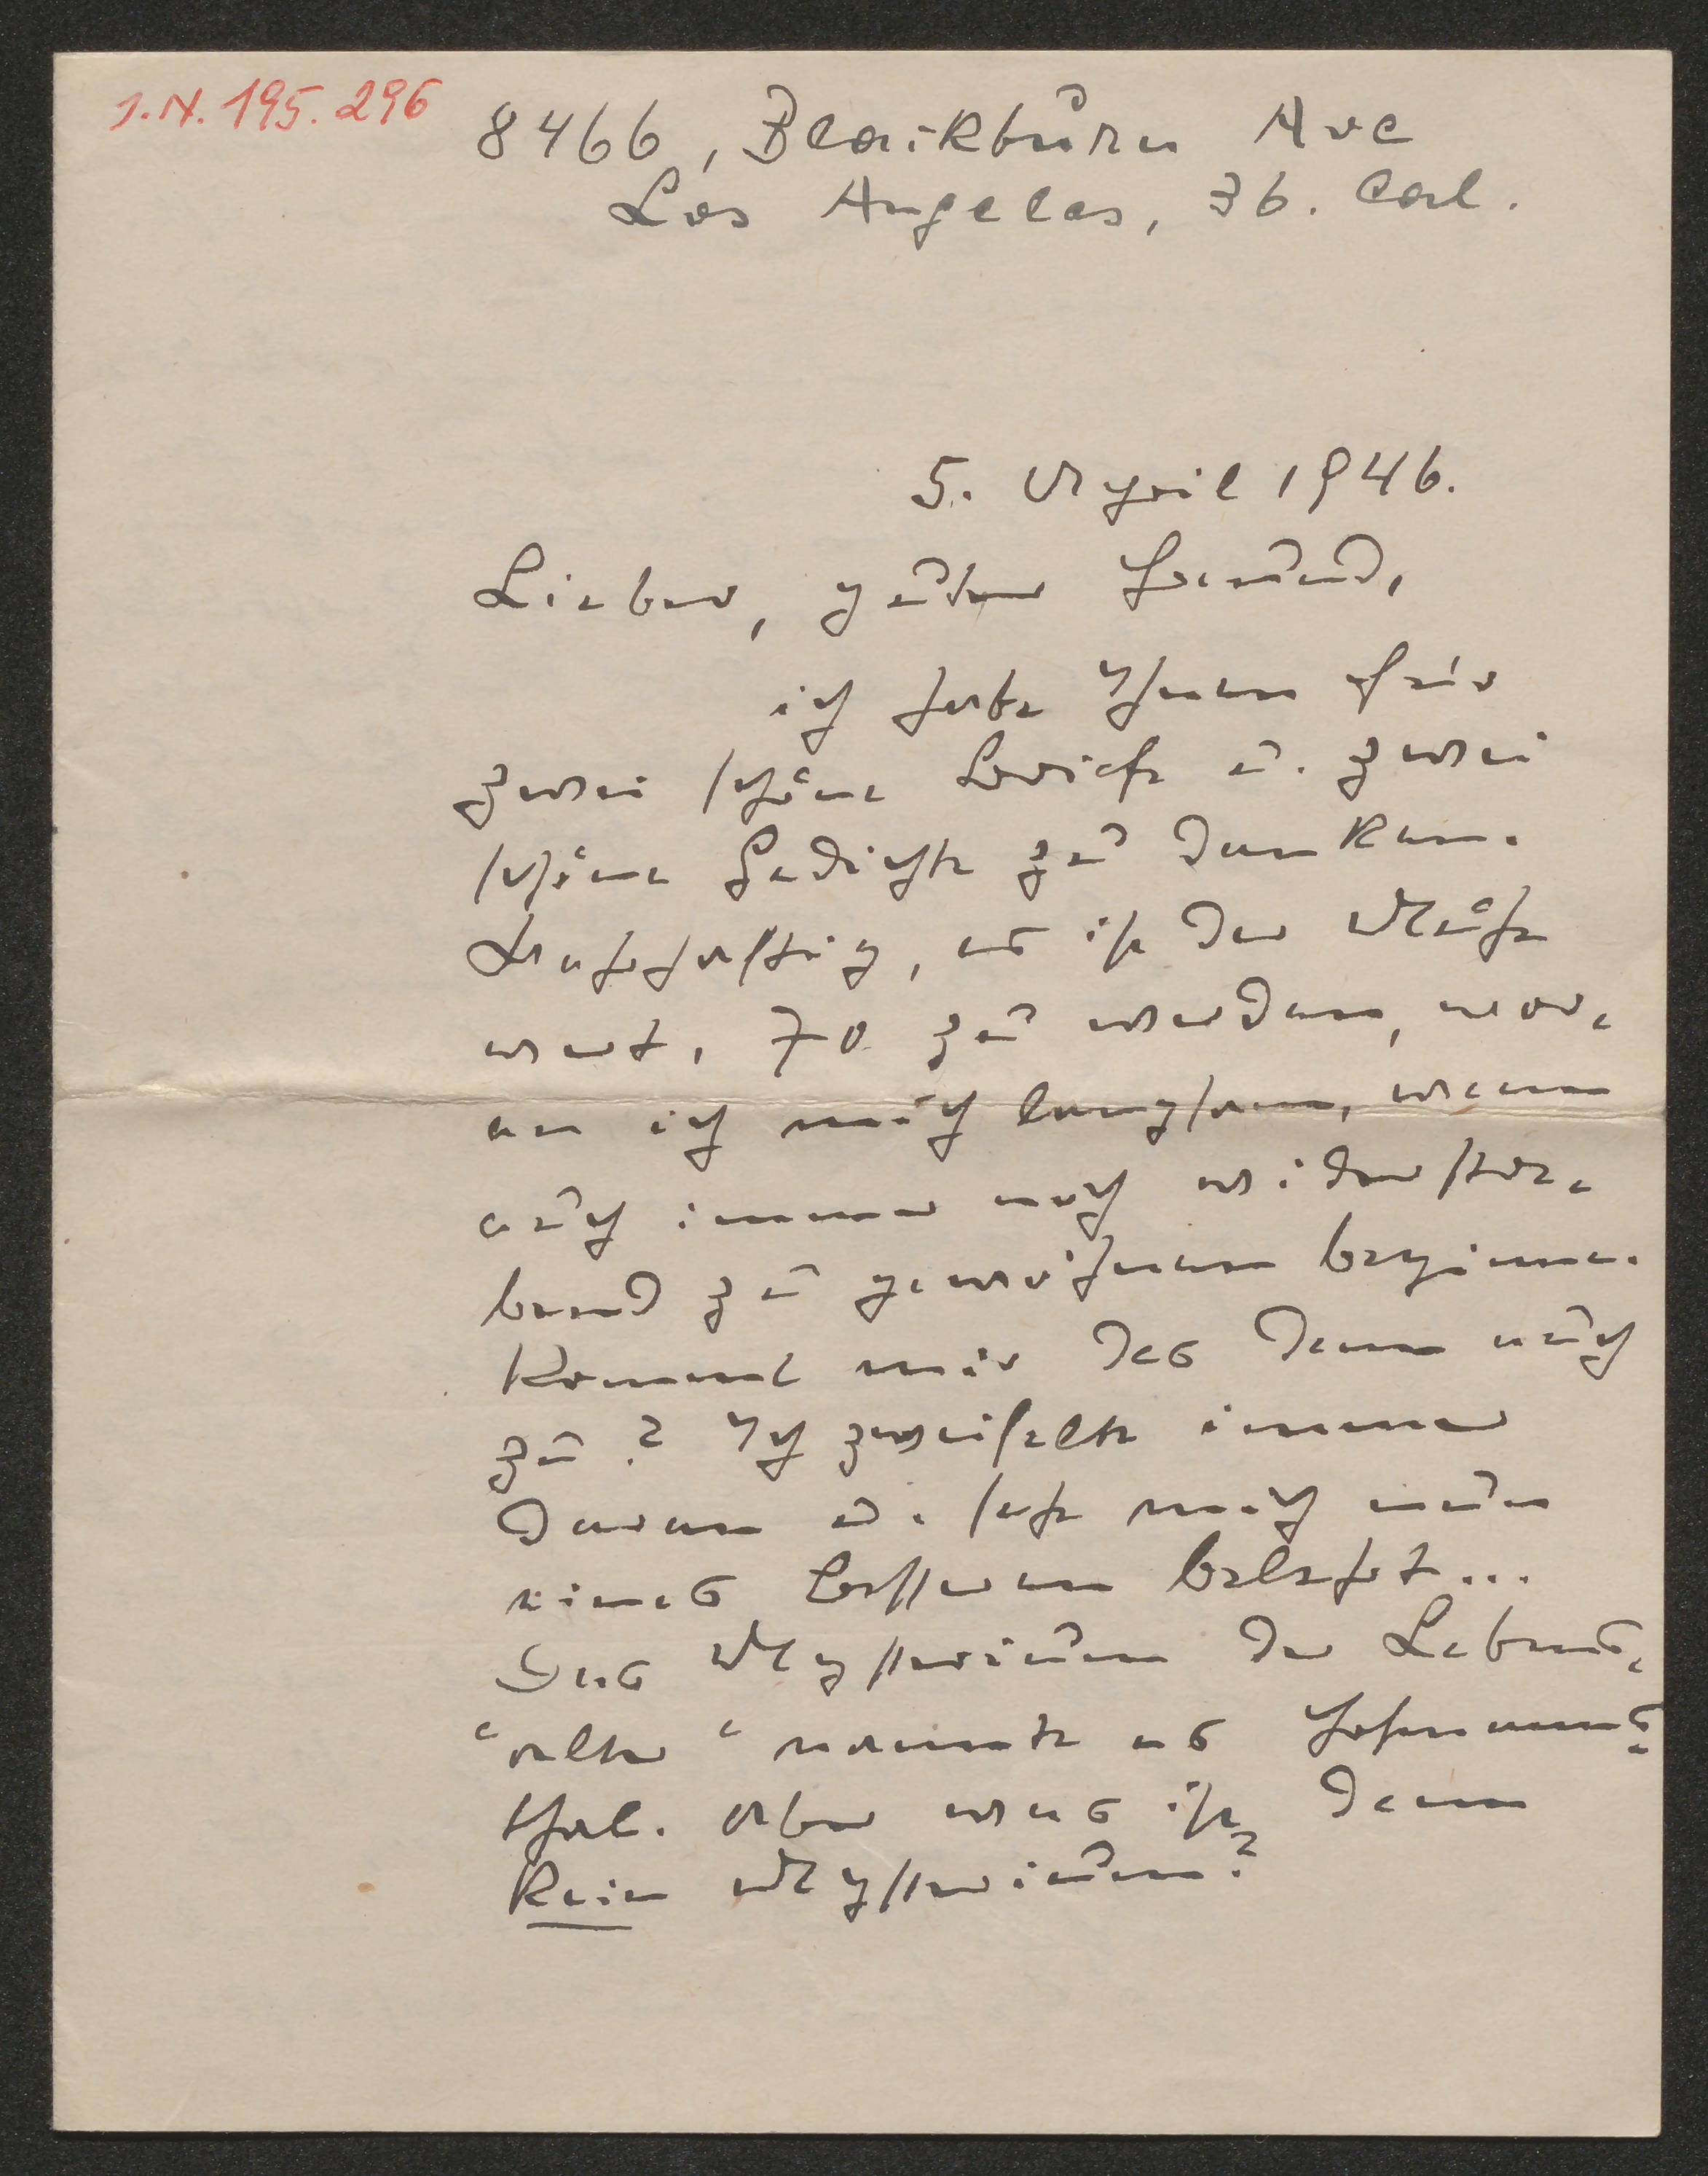 I.N. 195.296
8466, Blackburn Ave
Los Angeles, 36. Cal.
5. April 1946.
Lieber, guter Freund,
ich habe Ihnen für
zwei schöne Briefe u. zwei
schöne Gedichte zu danken.
Wahrhaftig, es ist der Mühe
wert, 70 zu werden, wor-
an ich mich langsam, wenn
auch immer noch widerstre-
bend zu gewöhnen beginne.
Kommt mir das denn auch
zu? Ich zweifelte immer
daran u. sehe mich nun
eines Besseren belehrt...
Das Mysterium der Lebens-
"alter" nannte es Hofmanns-
thal. Aber was ist denn
kein Mysterium?